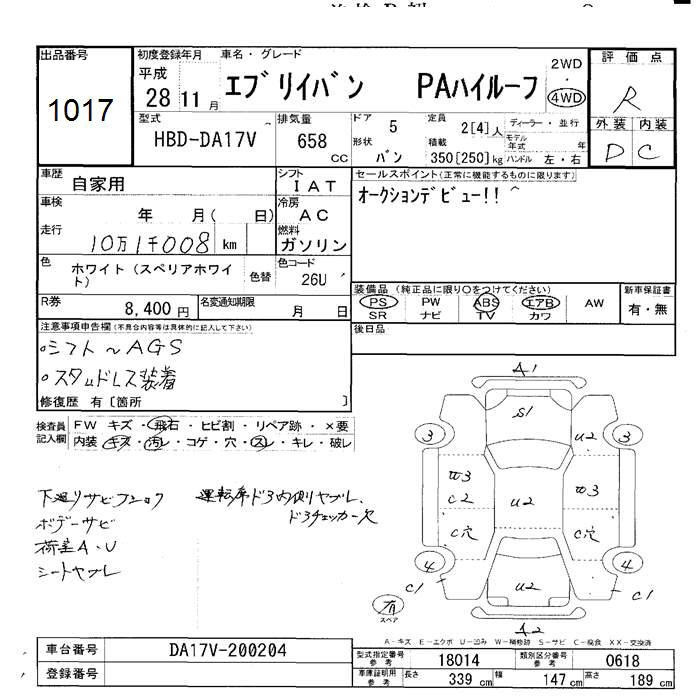 出品番号
1017
初度登録年月
平成
28 11 月
車名・グレード
エブリイバン PAハイルーフ
2WD
・
4WD
評価点
R
外装 内装
D C
型式
HBD-DA17V
排気量
658 cc
ドア
5
形状
バン
定員
2[4]人
積載
350[250]kg
ディーラー・並行
モデル年式 年
ハンドル 左・右
車歴
自家用
シフト
IAT
車検
年 月( 日)
冷房
AC
走行
10万1千008 km
燃料
ガソリン
色
ホワイト(スペリアホワイト)
色替
色コード
26U
R券
8,400 円
名変通知期限
月 日
セールスポイント(正常に機能するものに限ります)
オークションデビュー!!
装備品(純正品に限り○をつけてください)
PS PW ABS エアB AW
SR ナビ TV カワ
新車保証書
有・無
後日品
注意事項申告欄(不具合内容等は具体的に記入して下さい)
○シフト~AGS
○スタッドレス装着
修復歴 有〔箇所 〕
検査員記入欄
FW キズ・飛石・ヒビ割・リペア跡・×要
内装・キズ・汚レ・コゲ・穴・スレ・キレ・破レ
下廻りサビフロック
ボデーサビ
荷室A・U
シートヤブレ
運転席ドア内側ヤブレ、
ドアチェッカー欠
A1
S1
3
U2
3
W3
C2
U2
W3
C穴
C穴
4
4
C1
U2
C1
有
スペア
A2
A-キズ E-エクボ U-凹み W-補修跡 S-サビ C-腐食 XX-交換済
車台番号
DA17V-200204
登録番号
型式指定番号 参考
18014
類別区分番号 参考
0618
車庫証明用 参考
長さ 339 cm
幅 147 cm
高さ 189 cm